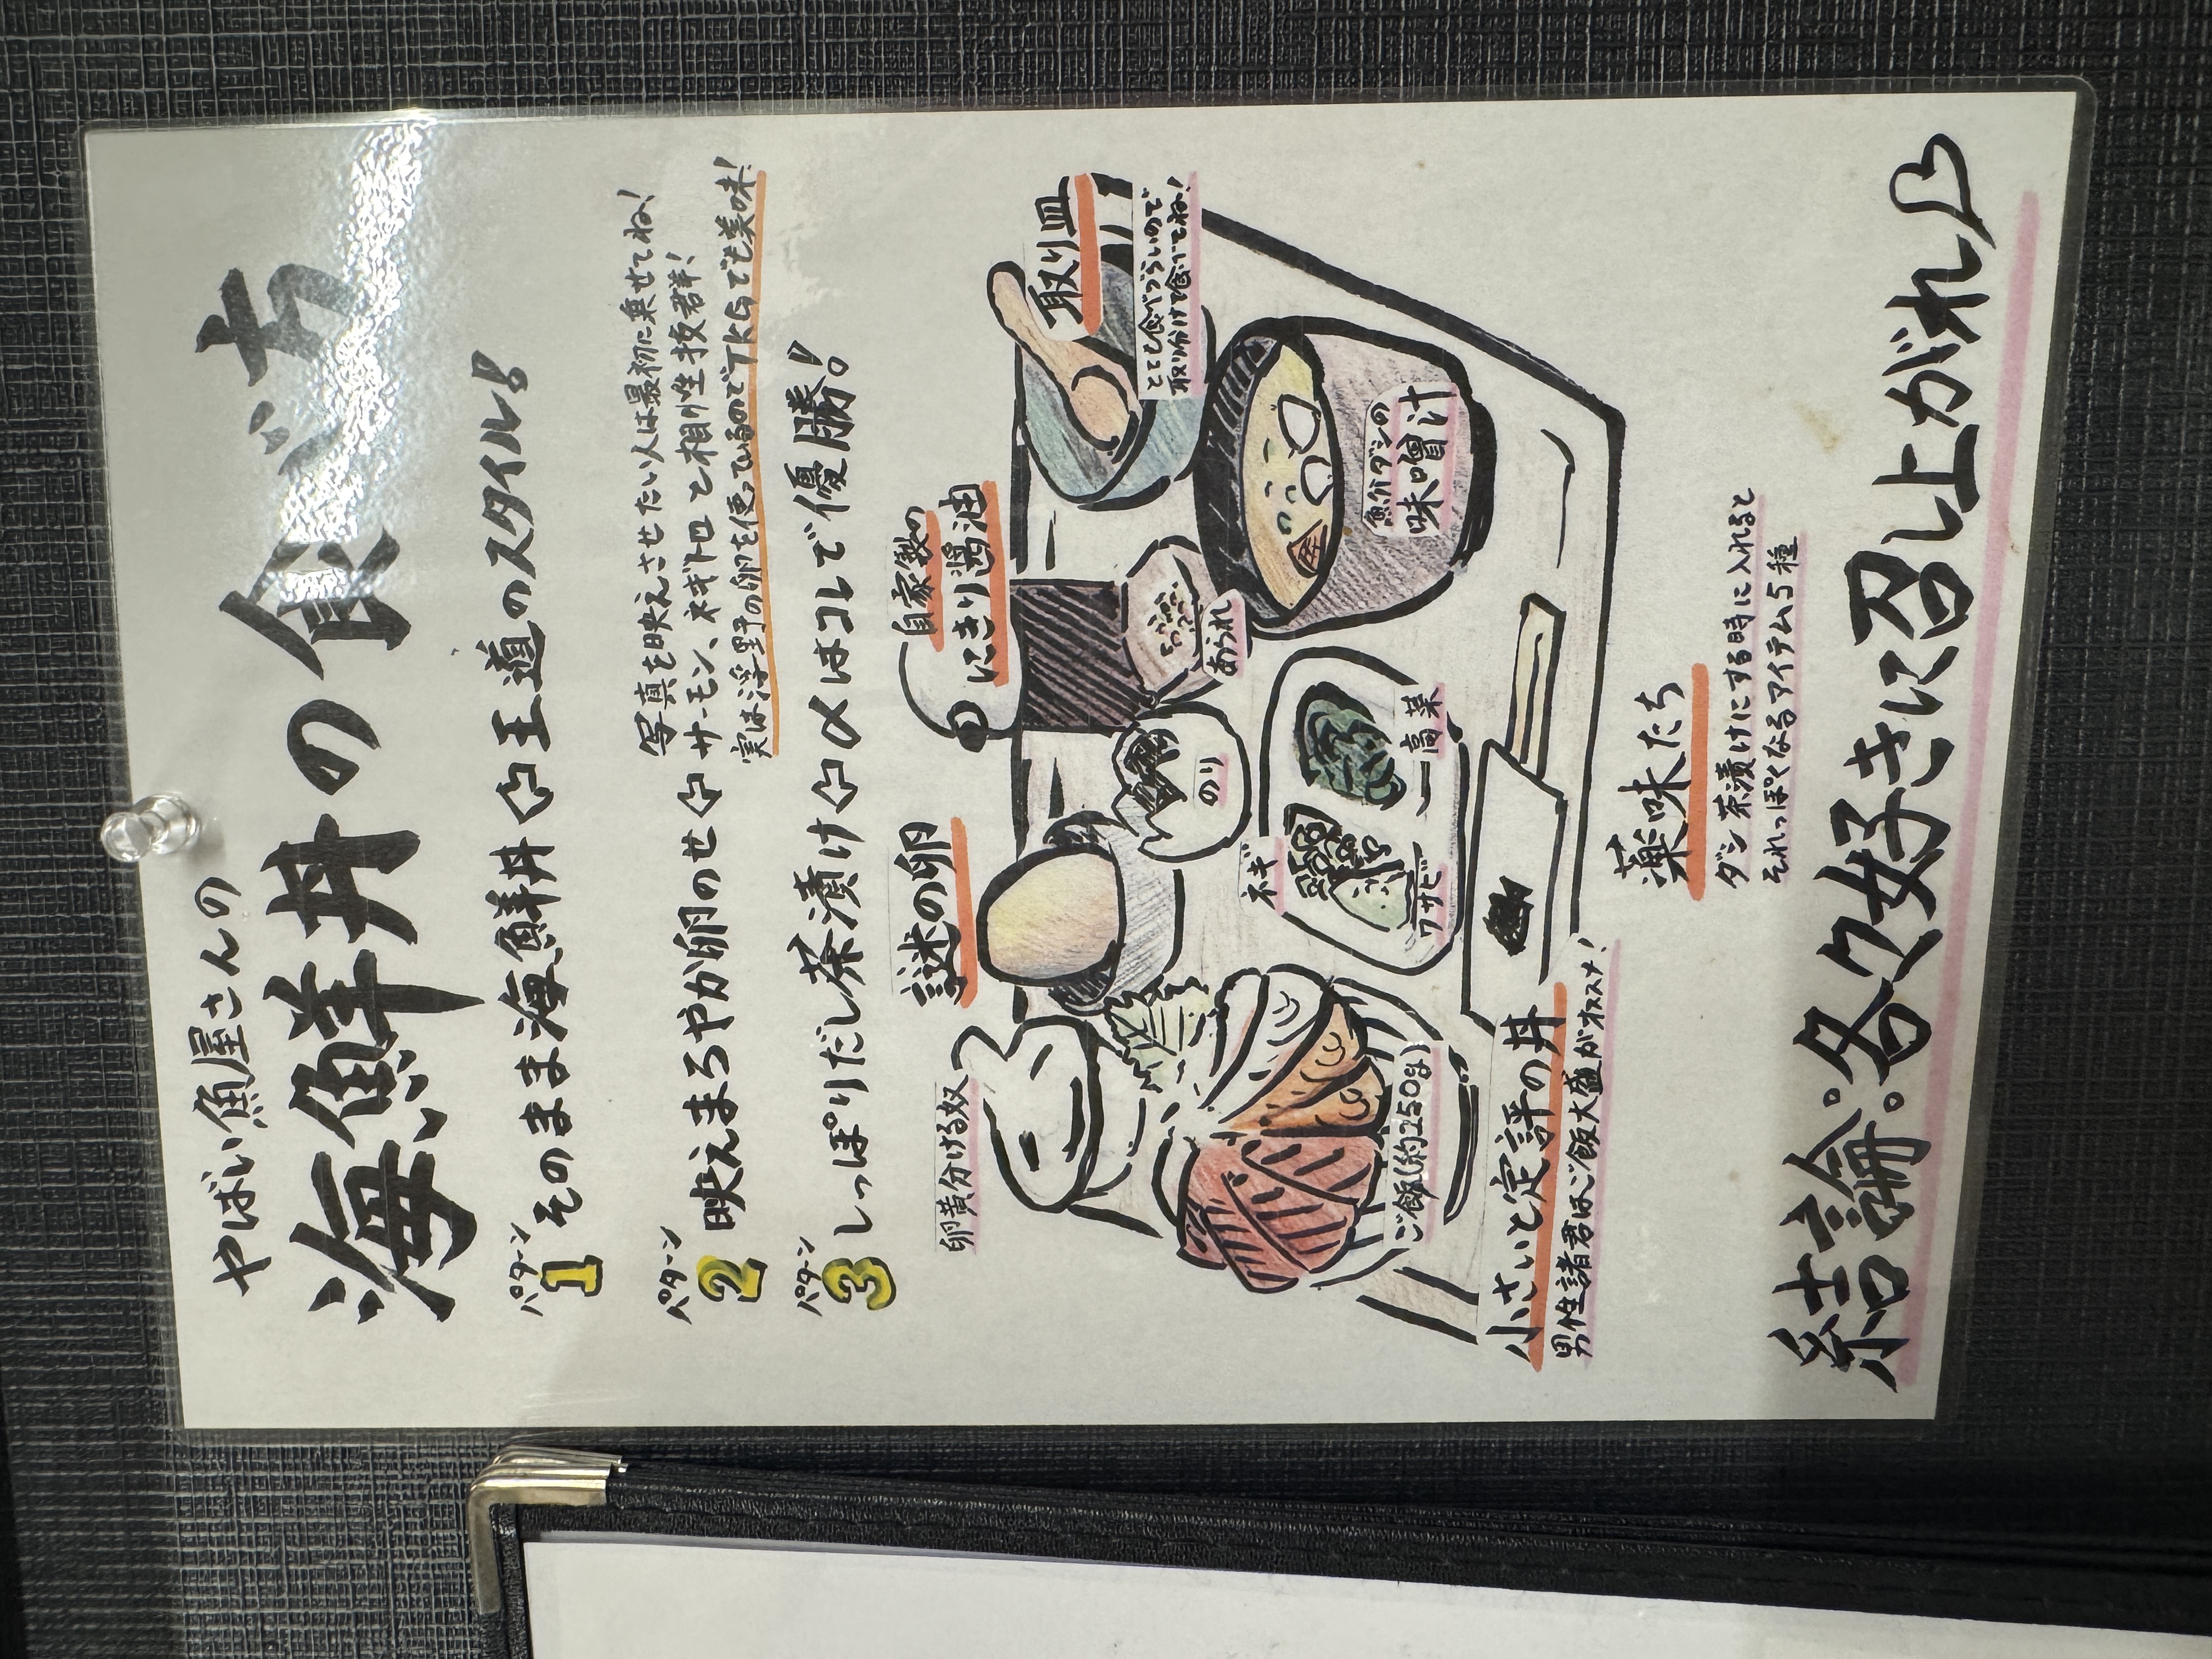 やばい魚屋さんの
海鮮丼の食べ方
パターン1 そのまま海鮮丼⇦王道のスタイル!
パターン2 映えまろやか卵のせ⇦
写真を映えさせたい人は最初に乗せてね!
サーモン、ネギトロと相性抜群!
実は浮野の卵を使っているのでTKGでも美味!
パターン3 しっぽりだし茶漬け⇦〆はコレで優勝!
卵黄分ける奴
謎の卵
自家製の
にきり醤油
取り皿
とても食べづらいので
取り分けて食べてね!
のり
あられ
魚介ダシの
味噌汁
ネギ
ワサビ
高菜
ご飯(約250g)
小さいと定評の丼
男性諸君はご飯大盛がオススメ!
薬味たち
ダシ茶漬けにする時に入れると
それっぽくなるアイテム5種
結論。各々好きに召し上がれ